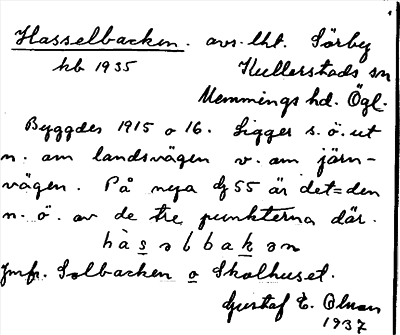 Hasselbacken. avs. lht. Sörby
kb 1935 Kullerstads sn
Memmings hd. Ögl.
Byggdes 1915 o 16. Ligger s.ö. ut
n. om landsvägen v. om järn-
vägen. På nya dj 55 är det = den
n.ö. av de tre punkterna där.
hàsəlbakən
Jmfr. Solbacken o Skolhuset.
Gustaf E. Olson
1937